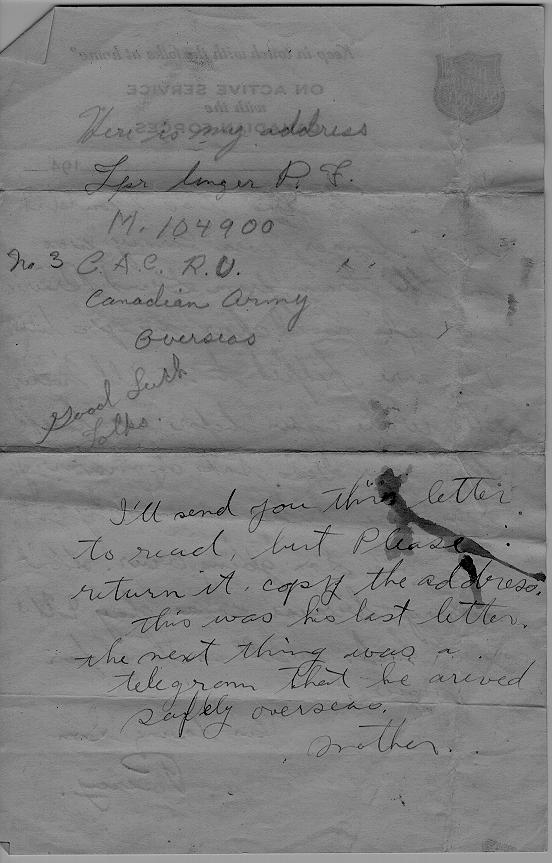 "Keep in touch with the folks at home"
ON ACTIVE SERVICE
with the
CANADIAN FORCES
194
Here is my address
Tpr Linger P. F.
M. 104900
No. 3 C. A. C. R. U.
Canadian Army
Overseas
Good Luck
Folks.
I'll send you this letter
to read, but Please
return it. copy the address.
this was his last letter.
the next thing was a
telegram that he arived
safely overseas.
mother.